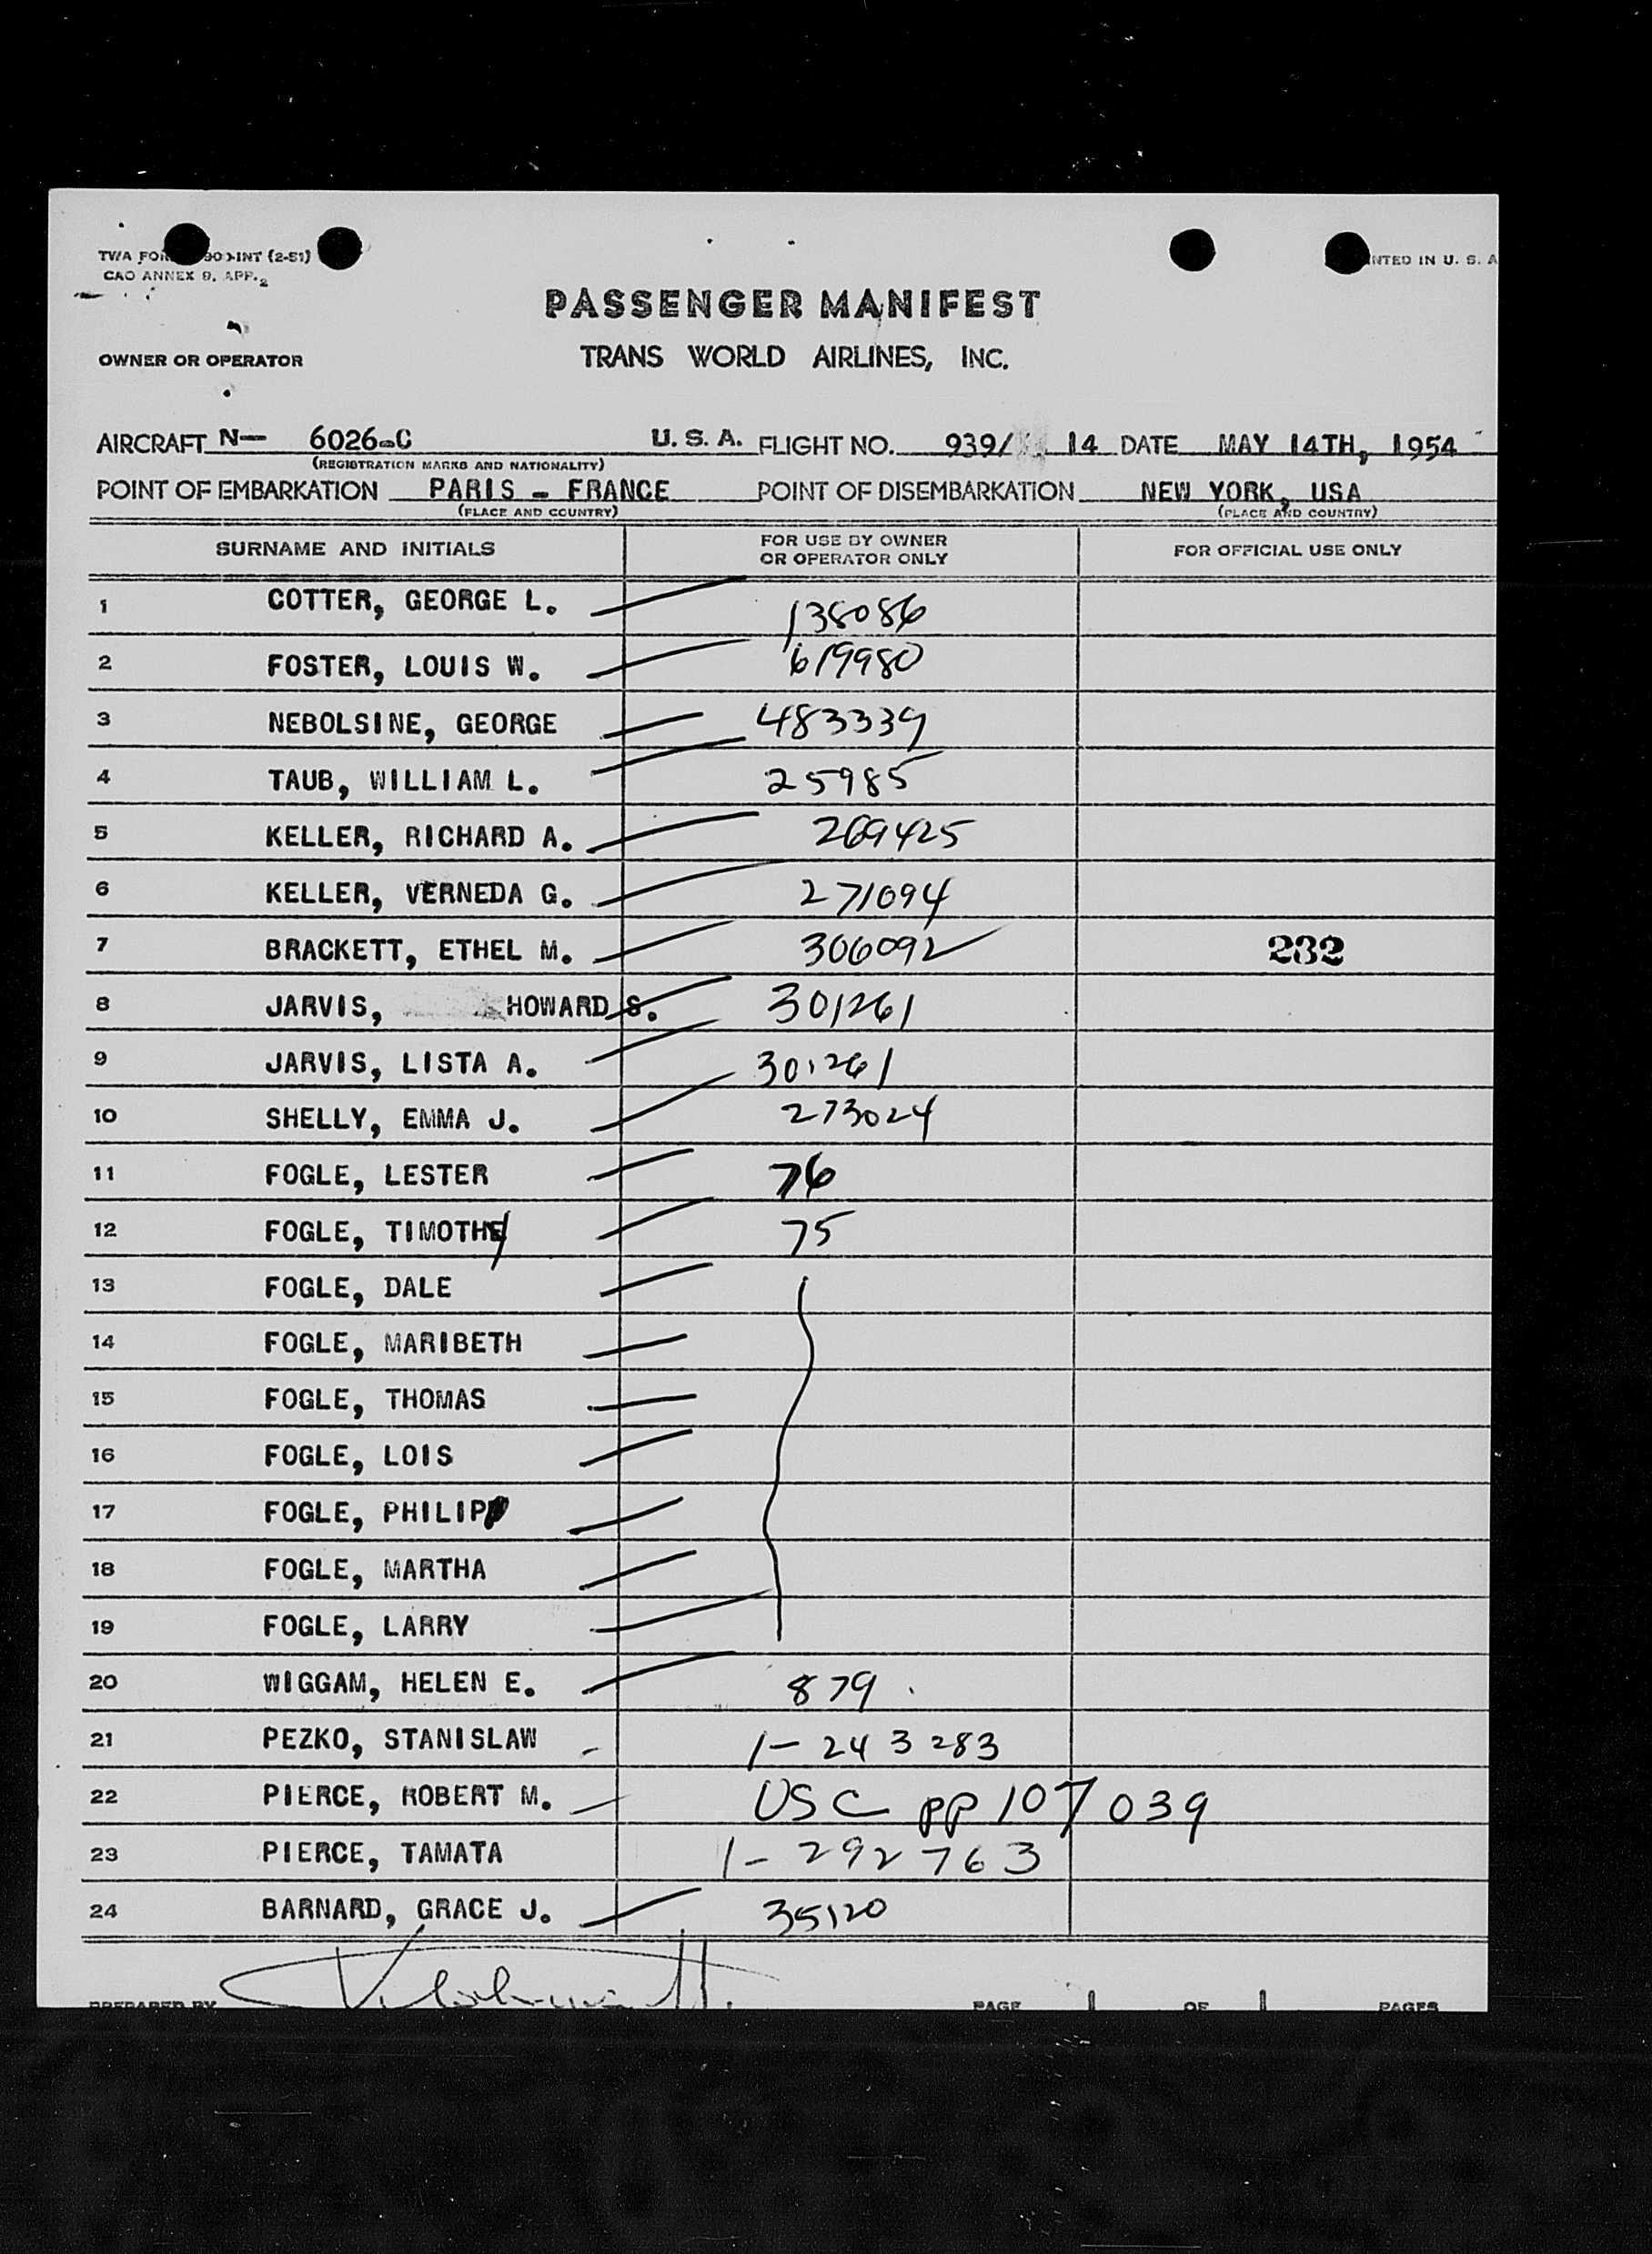 TWA FOR 90 INT (2-51)
CAO ANNEX 9, APP. 2
NTED IN U. S. A
PASSENGER MANIFEST
OWNER OR OPERATOR TRANS WORLD AIRLINES, INC.
AIRCRAFT N— 6026-C U. S. A. FLIGHT NO. 939/ 14 DATE MAY 14TH, 1954
(REGISTRATION MARKS AND NATIONALITY)
POINT OF EMBARKATION PARIS - FRANCE POINT OF DISEMBARKATION NEW YORK, USA
(PLACE AND COUNTRY) (PLACE AND COUNTRY)
SURNAME AND INITIALS FOR USE BY OWNER OR OPERATOR ONLY FOR OFFICIAL USE ONLY
1 COTTER, GEORGE L. 138086
2 FOSTER, LOUIS W. 619980
3 NEBOLSINE, GEORGE 483339
4 TAUB, WILLIAM L. 25985
5 KELLER, RICHARD A. 269425
6 KELLER, VERNEDA G. 271094
7 BRACKETT, ETHEL M. 306092 232
8 JARVIS, HOWARD S. 301261
9 JARVIS, LISTA A. 301261
10 SHELLY, EMMA J. 273024
11 FOGLE, LESTER 76
12 FOGLE, TIMOTHY 75
13 FOGLE, DALE
14 FOGLE, MARIBETH
15 FOGLE, THOMAS
16 FOGLE, LOIS
17 FOGLE, PHILIP
18 FOGLE, MARTHA
19 FOGLE, LARRY
20 WIGGAM, HELEN E. 879
21 PEZKO, STANISLAW 1-243283
22 PIERCE, ROBERT M. USC PP 107039
23 PIERCE, TAMATA 1-292763
24 BARNARD, GRACE J. 35120
PREPARED BY PAGE 1 OF 1 PAGES